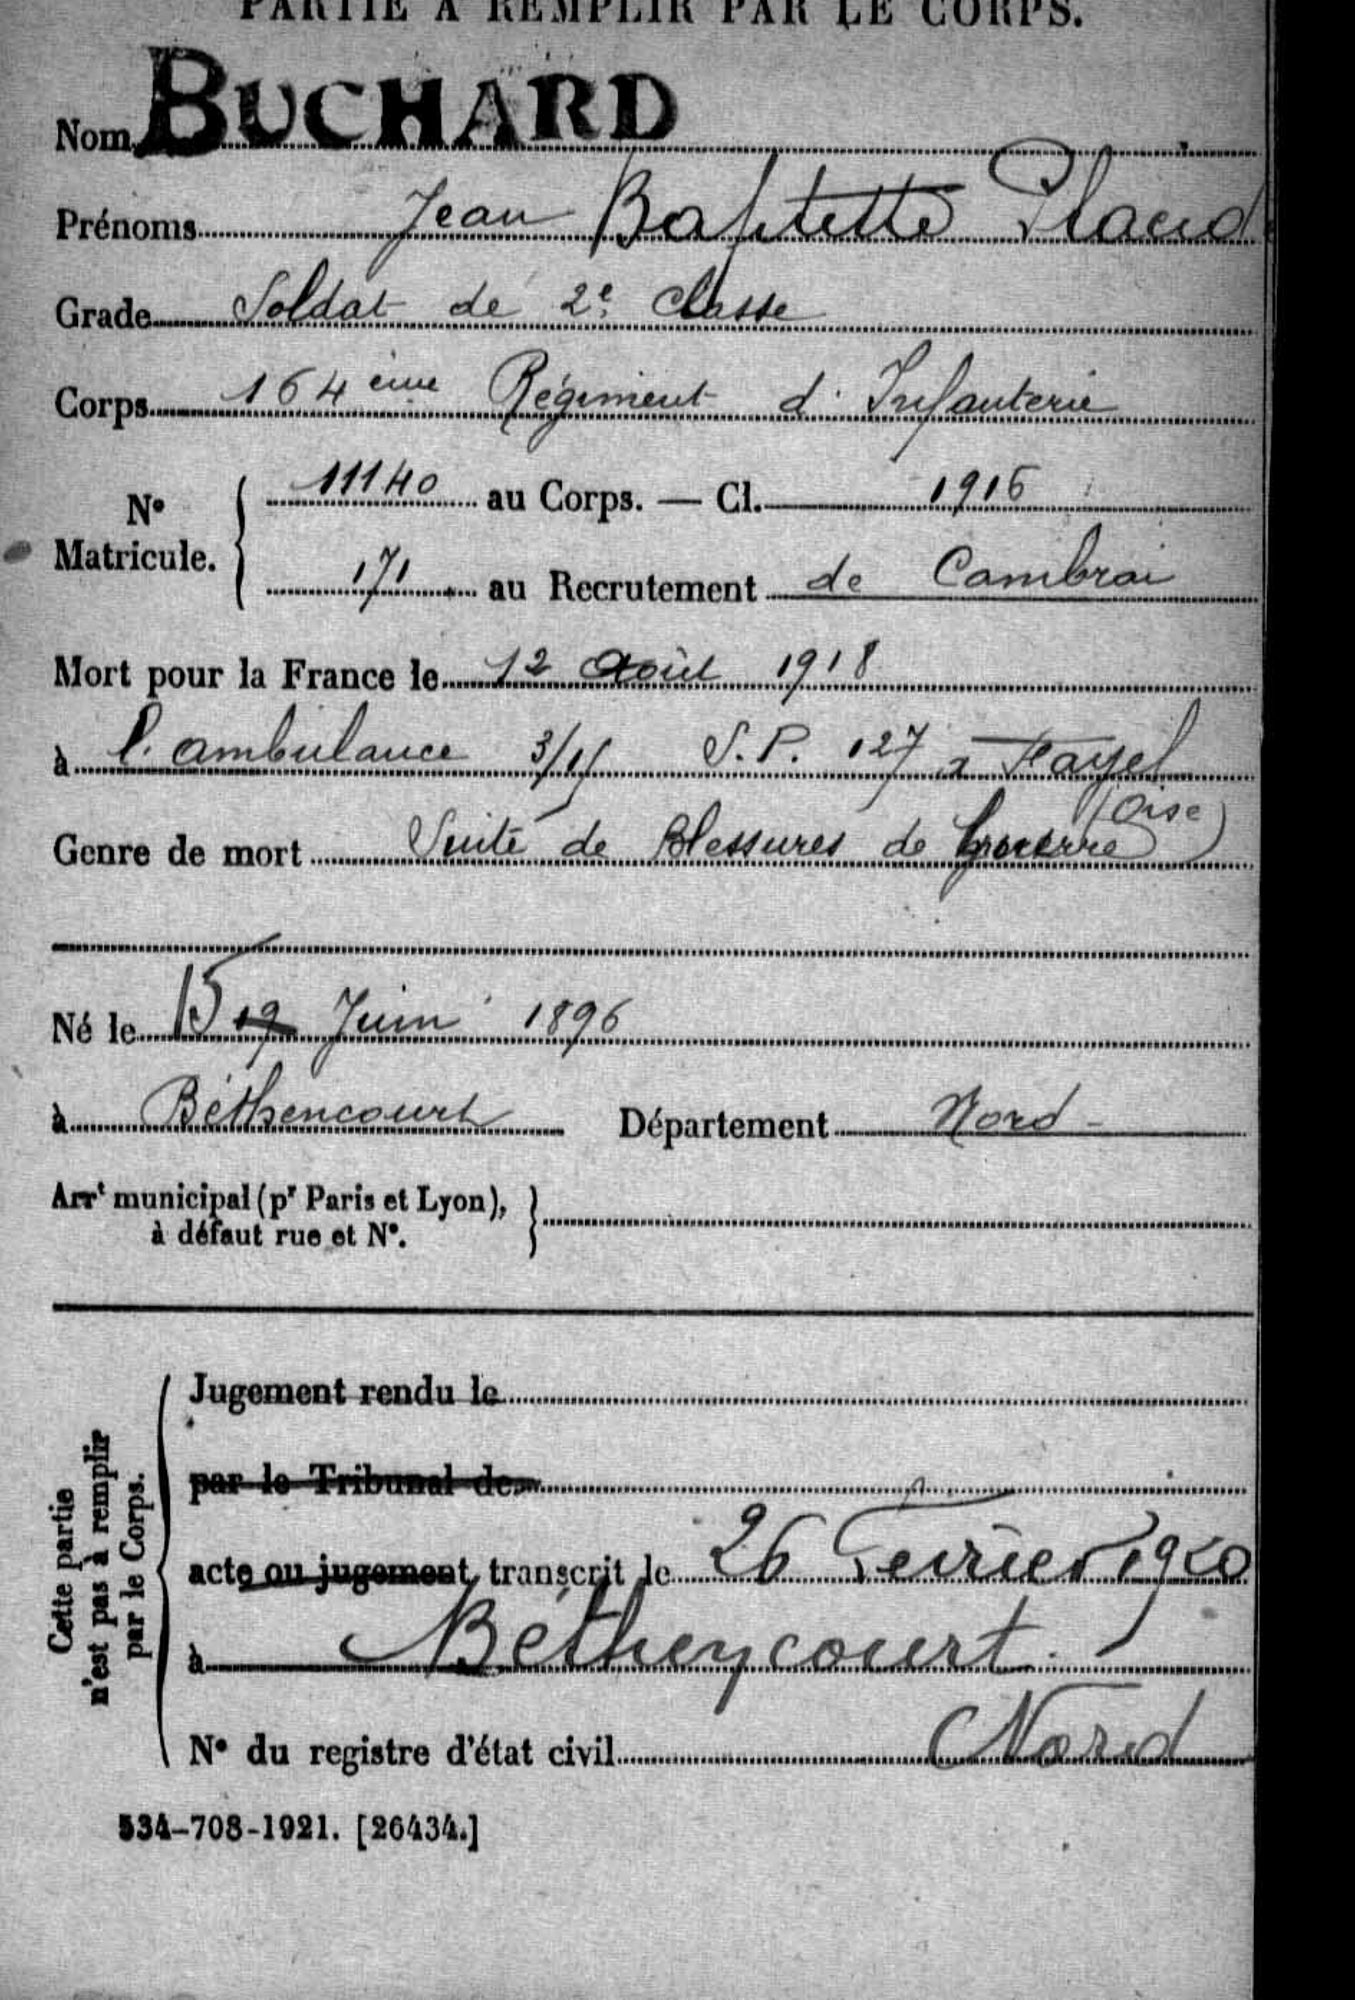 PARTIE A REMPLIR PAR LE CORPS.
Nom BUCHARD
Prénoms Jean Baptiste Placid
Grade Soldat de 2e Classe
Corps 164ème Régiment d'Infanterie
N° Matricule. 11140 au Corps. — Cl. 1916
171 au Recrutement de Cambrai
Mort pour la France le 12 Août 1918
à l'ambulance S.P. 127 à Fayel
(Oise)
Genre de mort Suite de Blessures de Guerre
Né le 15 19 Juin 1896
à Béthencourt Département Nord
Arrt municipal (pr Paris et Lyon),
à défaut rue et N°.
Cette partie
n'est pas à remplir
par le Corps.
Jugement rendu le
par le Tribunal de
acte ou jugement transcrit le 26 Février 1920
à Béthencourt
N° du registre d'état civil Nord
534-708-1921. [26434.]